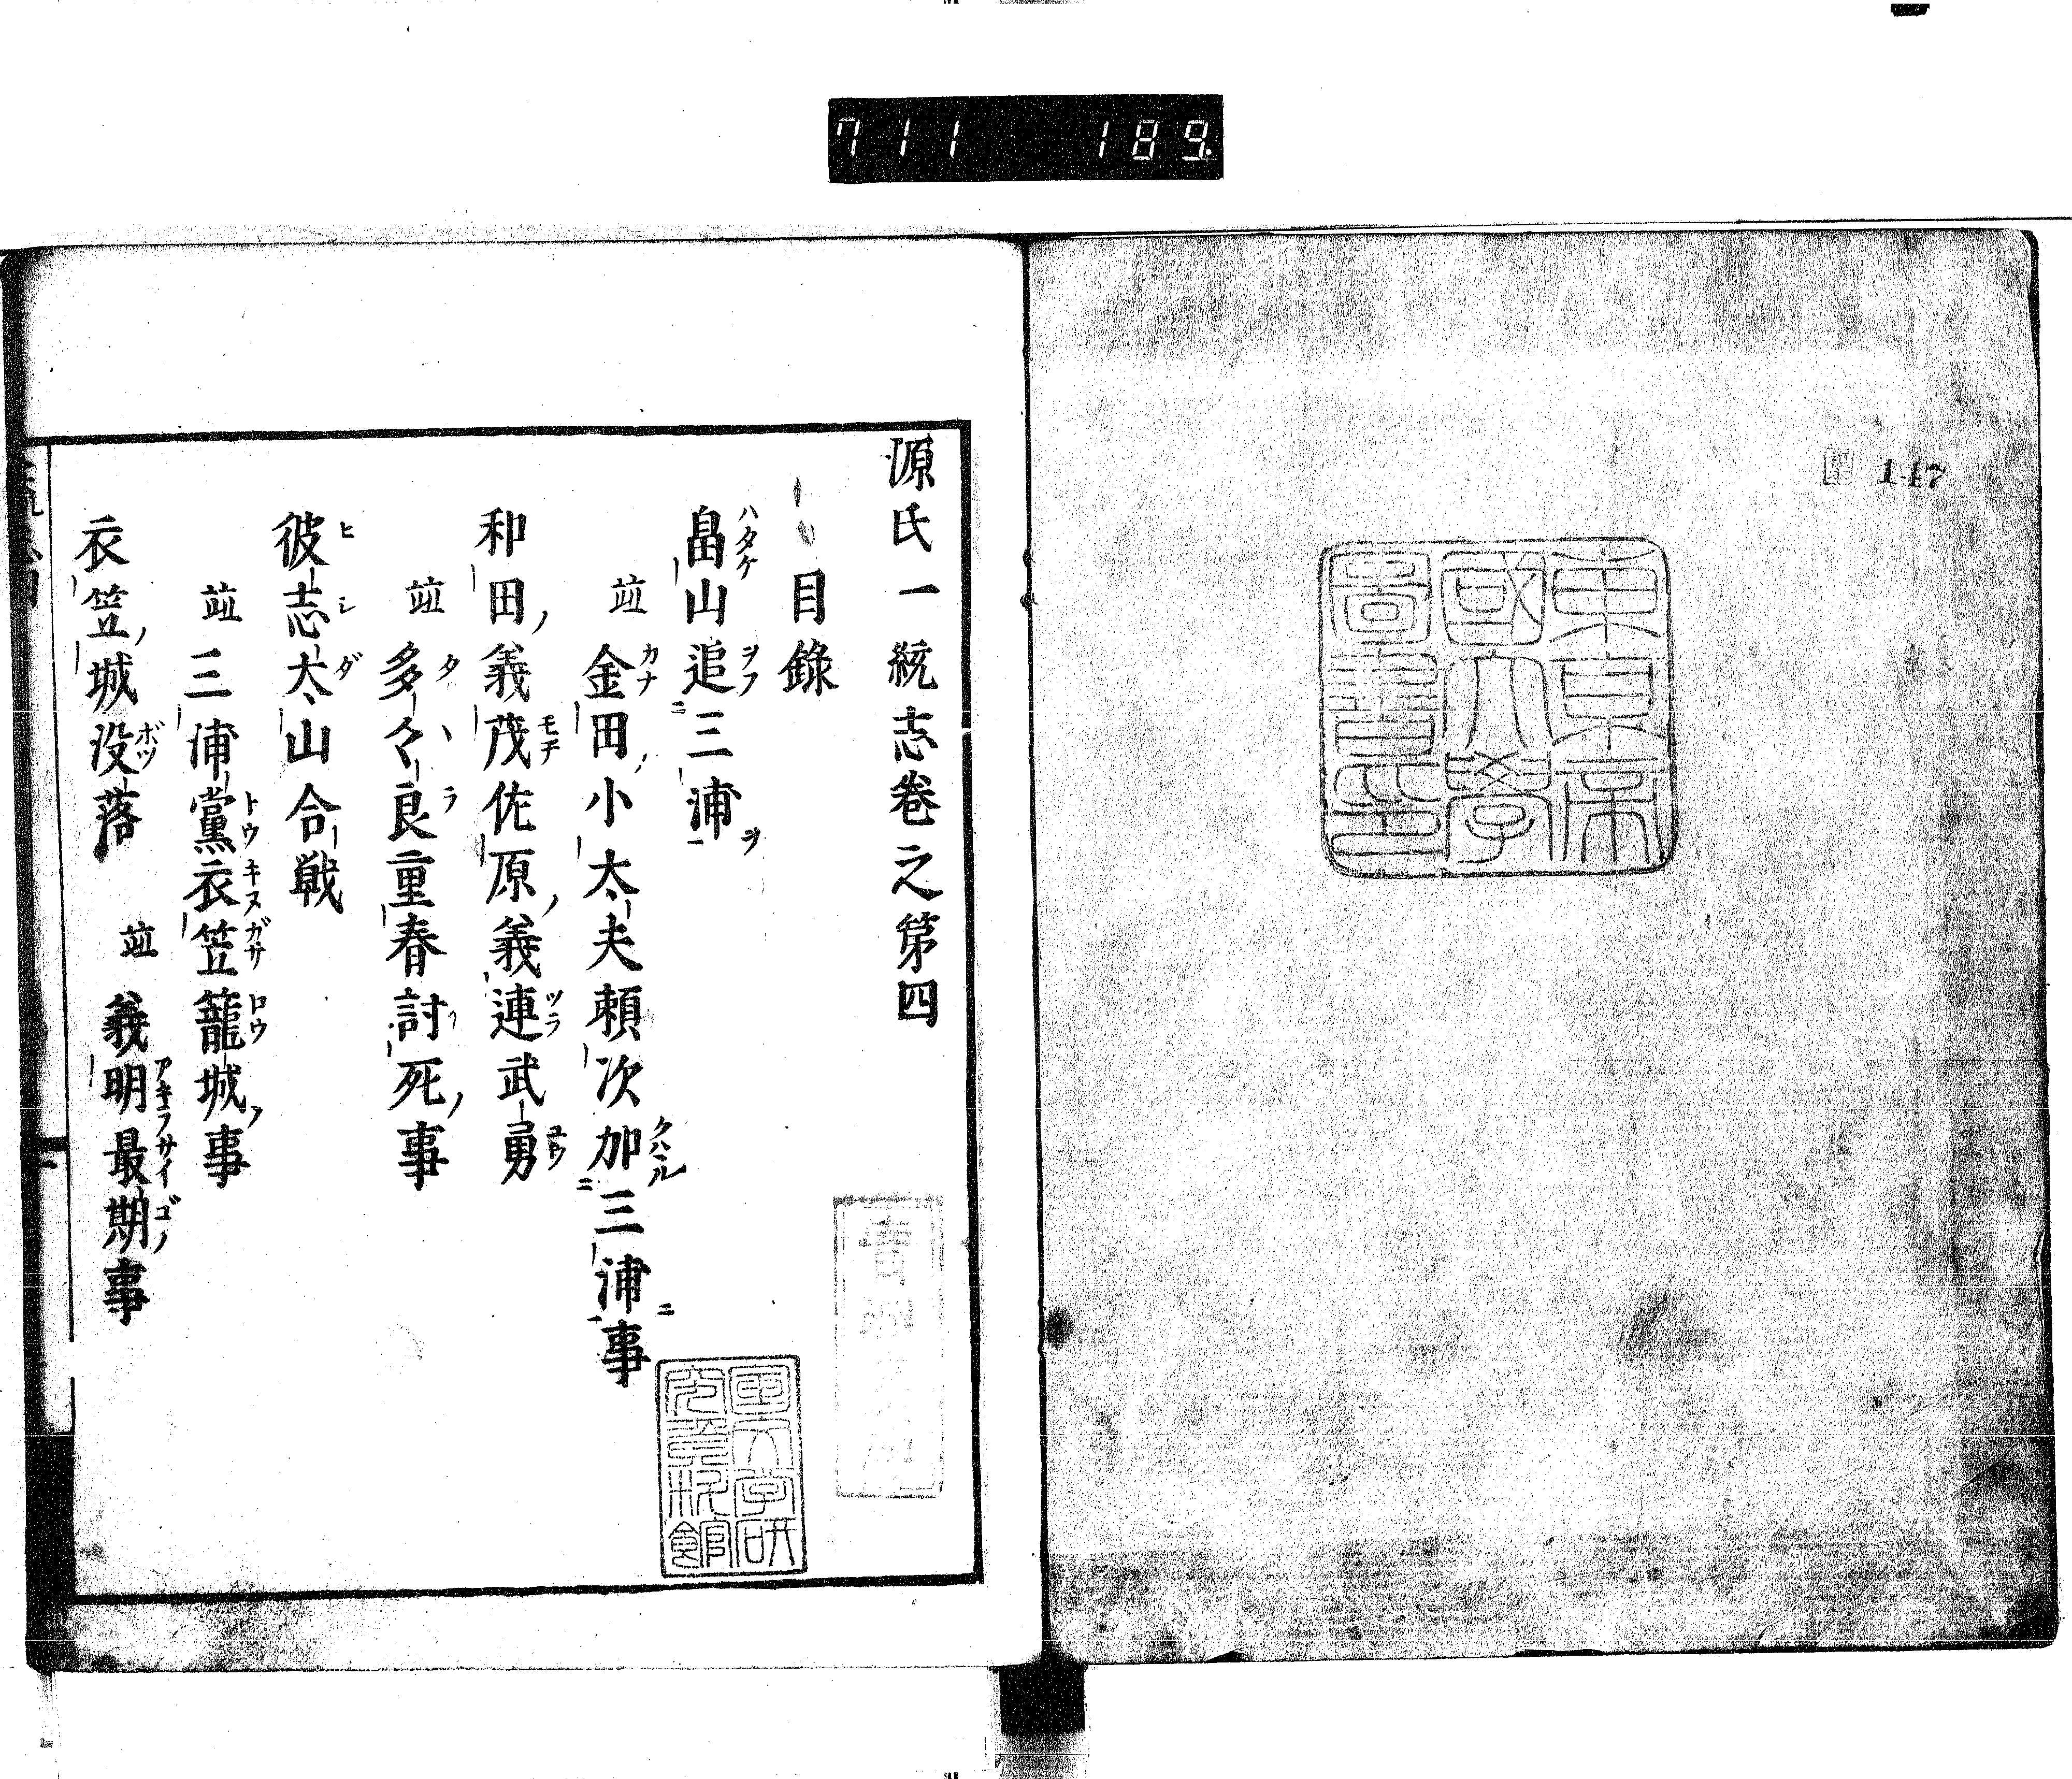 711 189
147
東京帝
國大學
圖書印
源氏一統志巻之第四
目録
畠山追三浦
並 金田小太夫頼次加三浦事
和田義茂佐原義連武勇
並 多々良重春討死事
彼志太山合戦
並 三浦黨衣笠籠城事
衣笠城没落 並 義明最期事